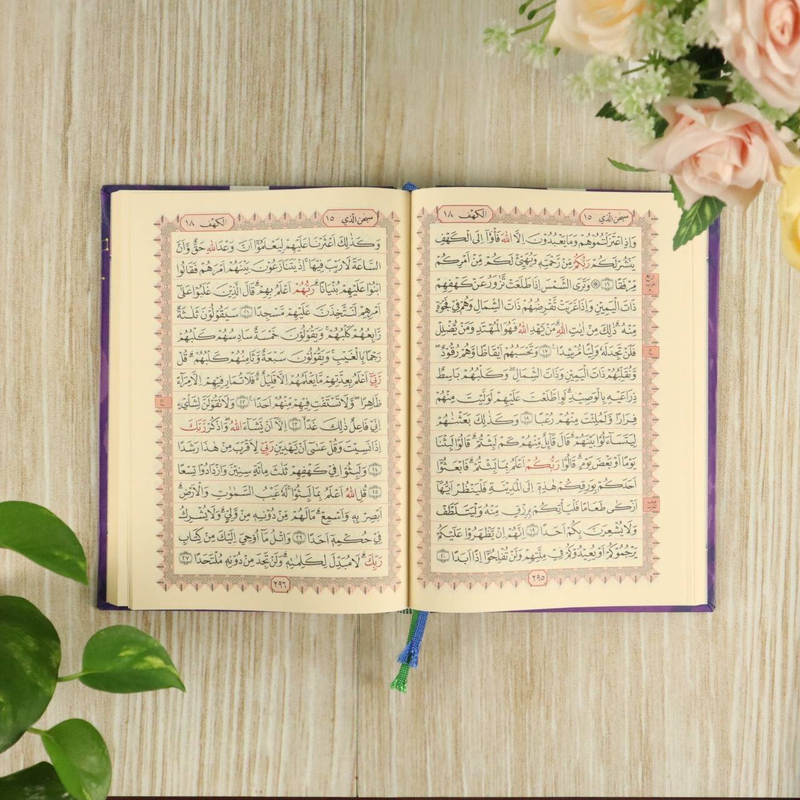 سبحن الذي ١٥
الكهف ١٨
وَاِذِ اعْتَزَلْتُمُوْهُمْ وَمَا يَعْبُدُوْنَ اِلَّا اللّٰهَ فَأْوٗٓا اِلَى الْكَهْفِ
يَنْشُرْ لَكُمْ رَبُّكُمْ مِّنْ رَّحْمَتِهٖ وَيُهَيِّئْ لَكُمْ مِّنْ اَمْرِكُمْ
مِّرْفَقًا ۝١٦ ۞ وَتَرَى الشَّمْسَ اِذَا طَلَعَتْ تَّزٰوَرُ عَنْ كَهْفِهِمْ
ذَاتَ الْيَمِيْنِ وَاِذَا غَرَبَتْ تَّقْرِضُهُمْ ذَاتَ الشِّمَالِ وَهُمْ فِيْ فَجْوَةٍ
مِّنْهُ ۗ ذٰلِكَ مِنْ اٰيٰتِ اللّٰهِ ۗ مَنْ يَّهْدِ اللّٰهُ فَهُوَ الْمُهْتَدِ وَمَنْ يُّضْلِلْ
فَلَنْ تَجِدَ لَهٗ وَلِيًّا مُّرْشِدًا ۝١٧ وَتَحْسَبُهُمْ اَيْقَاظًا وَّهُمْ رُقُوْدٌ ۖ
وَّنُقَلِّبُهُمْ ذَاتَ الْيَمِيْنِ وَذَاتَ الشِّمَالِ ۖ وَكَلْبُهُمْ بَاسِطٌ
ذِرَاعَيْهِ بِالْوَصِيْدِ ۗ لَوِ اطَّلَعْتَ عَلَيْهِمْ لَوَلَّيْتَ مِنْهُمْ
فِرَارًا وَّلَمُلِئْتَ مِنْهُمْ رُعْبًا ۝١٨ وَكَذٰلِكَ بَعَثْنٰهُمْ
لِيَتَسَاۤءَلُوْا بَيْنَهُمْ ۗ قَالَ قَاۤئِلٌ مِّنْهُمْ كَمْ لَبِثْتُمْ ۗ قَالُوْا لَبِثْنَا
يَوْمًا اَوْ بَعْضَ يَوْمٍ ۗ قَالُوْا رَبُّكُمْ اَعْلَمُ بِمَا لَبِثْتُمْ ۗ فَابْعَثُوْٓا
اَحَدَكُمْ بِوَرِقِكُمْ هٰذِهٖٓ اِلَى الْمَدِيْنَةِ فَلْيَنْظُرْ اَيُّهَآ
اَزْكٰى طَعَامًا فَلْيَأْتِكُمْ بِرِزْقٍ مِّنْهُ وَلْيَتَلَطَّفْ
وَلَا يُشْعِرَنَّ بِكُمْ اَحَدًا ۝١٩ اِنَّهُمْ اِنْ يَّظْهَرُوْا عَلَيْكُمْ
يَرْجُمُوْكُمْ اَوْ يُعِيْدُوْكُمْ فِيْ مِلَّتِهِمْ وَلَنْ تُفْلِحُوْٓا اِذًا اَبَدًا ۝٢٠
٢٩٥
سبحن الذي ١٥
الكهف ١٨
وَكَذٰلِكَ اَعْثَرْنَا عَلَيْهِمْ لِيَعْلَمُوْٓا اَنَّ وَعْدَ اللّٰهِ حَقٌّ وَّاَنَّ
السَّاعَةَ لَا رَيْبَ فِيْهَا ۚ اِذْ يَتَنَازَعُوْنَ بَيْنَهُمْ اَمْرَهُمْ فَقَالُوا
ابْنُوْا عَلَيْهِمْ بُنْيَانًا ۗ رَبُّهُمْ اَعْلَمُ بِهِمْ ۗ قَالَ الَّذِيْنَ غَلَبُوْا عَلٰٓى
اَمْرِهِمْ لَنَتَّخِذَنَّ عَلَيْهِمْ مَّسْجِدًا ۝٢١ سَيَقُوْلُوْنَ ثَلٰثَةٌ
رَّابِعُهُمْ كَلْبُهُمْ ۚ وَيَقُوْلُوْنَ خَمْسَةٌ سَادِسُهُمْ كَلْبُهُمْ
رَجْمًا بِالْغَيْبِ ۚ وَيَقُوْلُوْنَ سَبْعَةٌ وَّثَامِنُهُمْ كَلْبُهُمْ ۗ قُلْ
رَّبِّيْٓ اَعْلَمُ بِعِدَّتِهِمْ مَّا يَعْلَمُهُمْ اِلَّا قَلِيْلٌ ۗ فَلَا تُمَارِ فِيْهِمْ اِلَّا مِرَاۤءً
ظَاهِرًا ۖ وَّلَا تَسْتَفْتِ فِيْهِمْ مِّنْهُمْ اَحَدًا ۝٢٢ وَلَا تَقُوْلَنَّ لِشَا۟يْءٍ
اِنِّيْ فَاعِلٌ ذٰلِكَ غَدًا ۝٢٣ اِلَّآ اَنْ يَّشَاۤءَ اللّٰهُ ۖ وَاذْكُرْ رَّبَّكَ
اِذَا نَسِيْتَ وَقُلْ عَسٰٓى اَنْ يَّهْدِيَنِ رَبِّيْ لِاَقْرَبَ مِنْ هٰذَا رَشَدًا
۝٢٤ وَلَبِثُوْا فِيْ كَهْفِهِمْ ثَلٰثَ مِائَةٍ سِنِيْنَ وَازْدَادُوْا تِسْعًا
۝٢٥ قُلِ اللّٰهُ اَعْلَمُ بِمَا لَبِثُوْا ۚ لَهٗ غَيْبُ السَّمٰوٰتِ وَالْاَرْضِ ۗ
اَبْصِرْ بِهٖ وَاَسْمِعْ ۗ مَا لَهُمْ مِّنْ دُوْنِهٖ مِنْ وَّلِيٍّ ۗ وَّلَا يُشْرِكُ
فِيْ حُكْمِهٖٓ اَحَدًا ۝٢٦ وَاتْلُ مَآ اُوْحِيَ اِلَيْكَ مِنْ كِتَابِ
رَبِّكَ ۗ لَا مُبَدِّلَ لِكَلِمٰتِهٖ ۗ وَلَنْ تَجِدَ مِنْ دُوْنِهٖ مُلْتَحَدًا ۝٢٧
٢٩٦